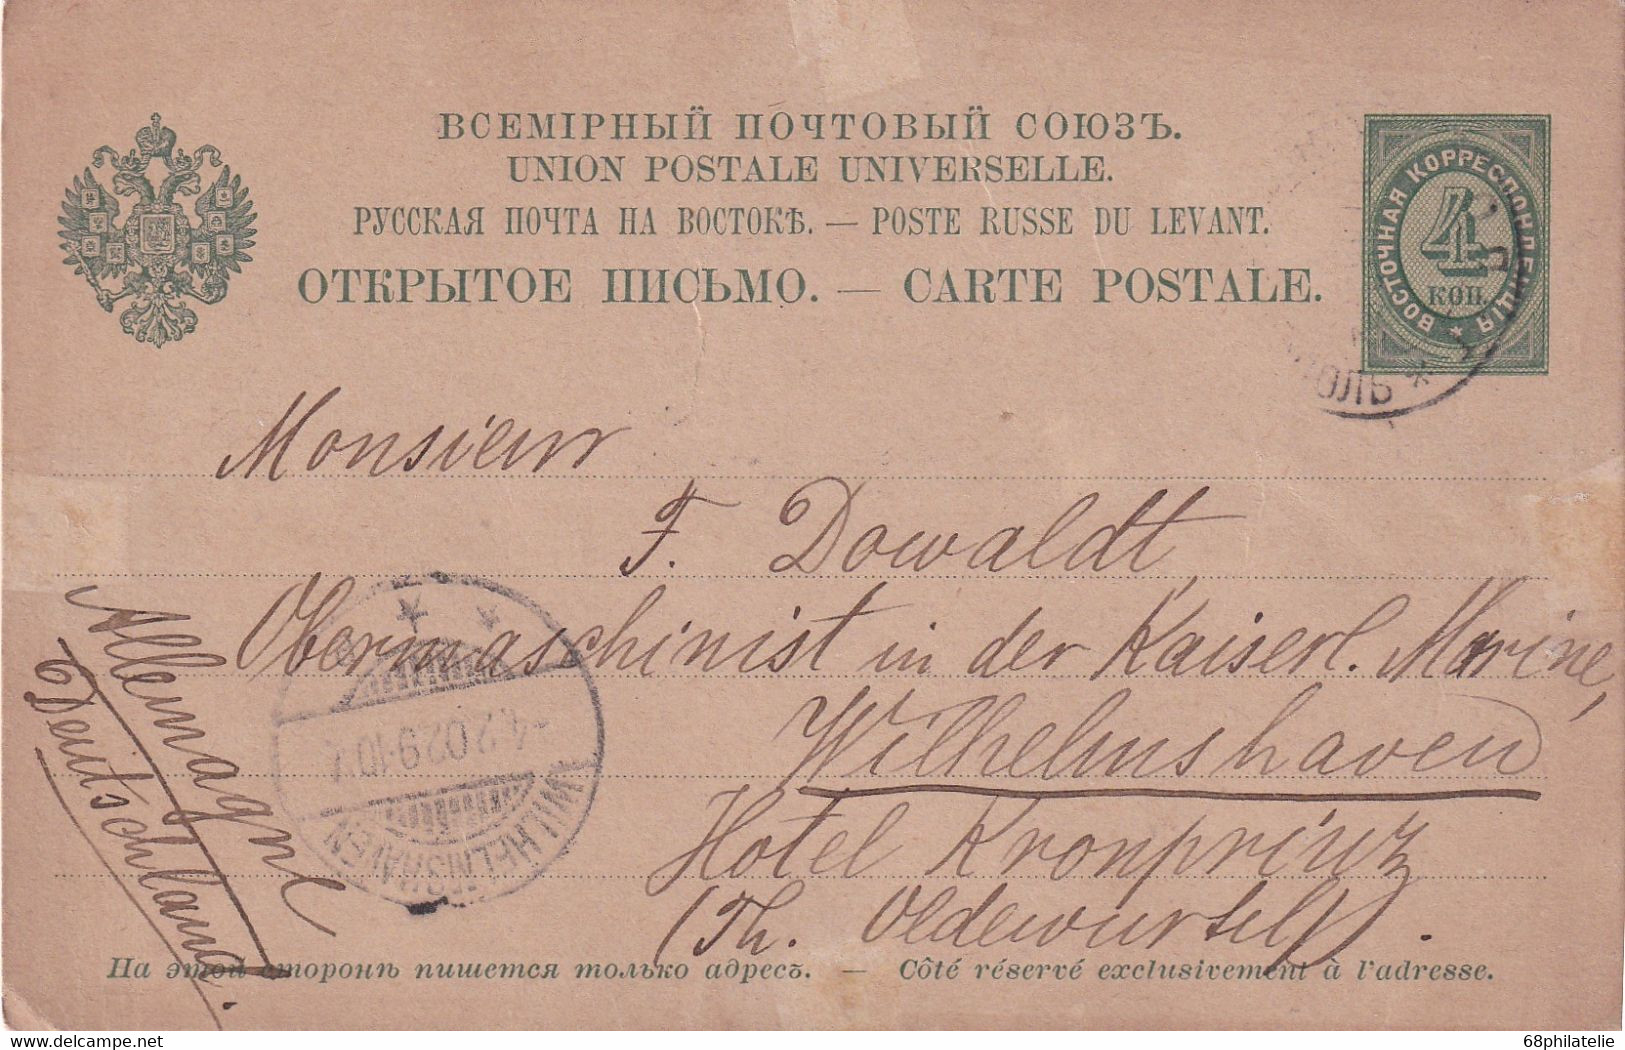 ВСЕМІРНЫЙ ПОЧТОВЫЙ СОЮЗЪ.
UNION POSTALE UNIVERSELLE.
РУССКАЯ ПОЧТА НА ВОСТОКѢ. — POSTE RUSSE DU LEVANT.
ОТКРЫТОЕ ПИСЬМО. — CARTE POSTALE.
ВОСТОЧНАЯ КОРРЕСПОНДЕНЦІЯ
4
КОП.
Monsieur
F. Dowaldt
Obermaschinist in der Kaiserl. Marine,
Wilhelmshaven
Hotel Kronprinz
(Th. Oldewurtel).
Allemagne
Deutschland.
WILHELMSHAVEN
-4.2.02.9-10
На этой сторонѣ пишется только адресъ. — Côté réservé exclusivement à l'adresse.
delcampe.net
68philatelie